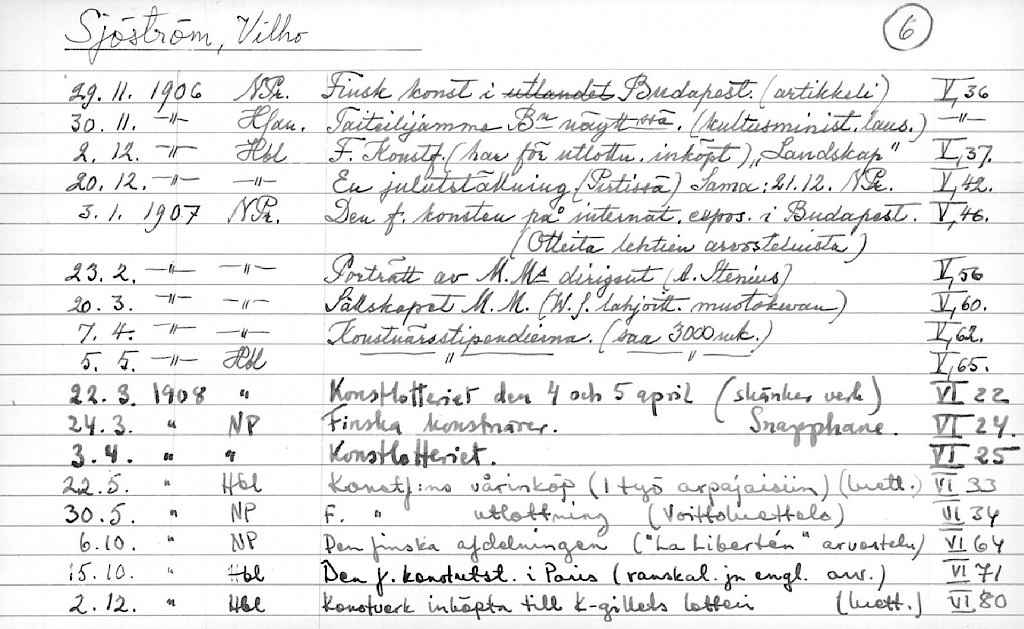 Sjöström, Vilho 6
29.11. 1906 NPr. Finsk konst i utlandet Budapest. (artikkeli) V,36
30.11. -"- Hfau. Taiteilijamme Bn näytt.ssä. (kultusminist. laus.) -"-
2.12. -"- Hbl F. Konstf. (har för utlottn. inköpt) „Landskap" V,37.
20.12. -"- -"- En julutställning. (Pirtissä) Sama: 21.12. NPr. V,42.
3.1. 1907 NPr. Den f. konsten på internat. expos. i Budapest. V,46.
(Otteita lehtien arvosteluista)
23.2. -"- -"- Porträtt av M.Ms dirigent (A. Stenius) V,56
20.3. -"- -"- Sällskapet M.M. (W.S. lahjoitt. muotokuvan) V,60.
7.4. -"- -"- Konstnärsstipendierna. (saa 3000 mk.) V,62.
5.5. -"- Hbl " " V,65.
22.3. 1908 " Konstlotteriet den 4 och 5 april (skänker verk) VI 22
24.3. " NP Finska konstnärer. Snapphane. VI 24.
3.4. " " Konstlotteriet. VI 25
22.5. " Hbl Konstf:ns vårinköp (1 työ arpajaisiin) (luett.) VI 33
30.5. " NP F. " utlottning (Voittoluettelo) VI 34
6.10. " NP Den finska afdelningen ("La Libertén" arvostelu) VI 64
15.10. " Hbl Den f. konstutst. i Paris (ranskal. ja engl. arv.) VI 71
2.12. " Hbl Konstverk inköpta till K-gillets lotteri (luett.) VI 80